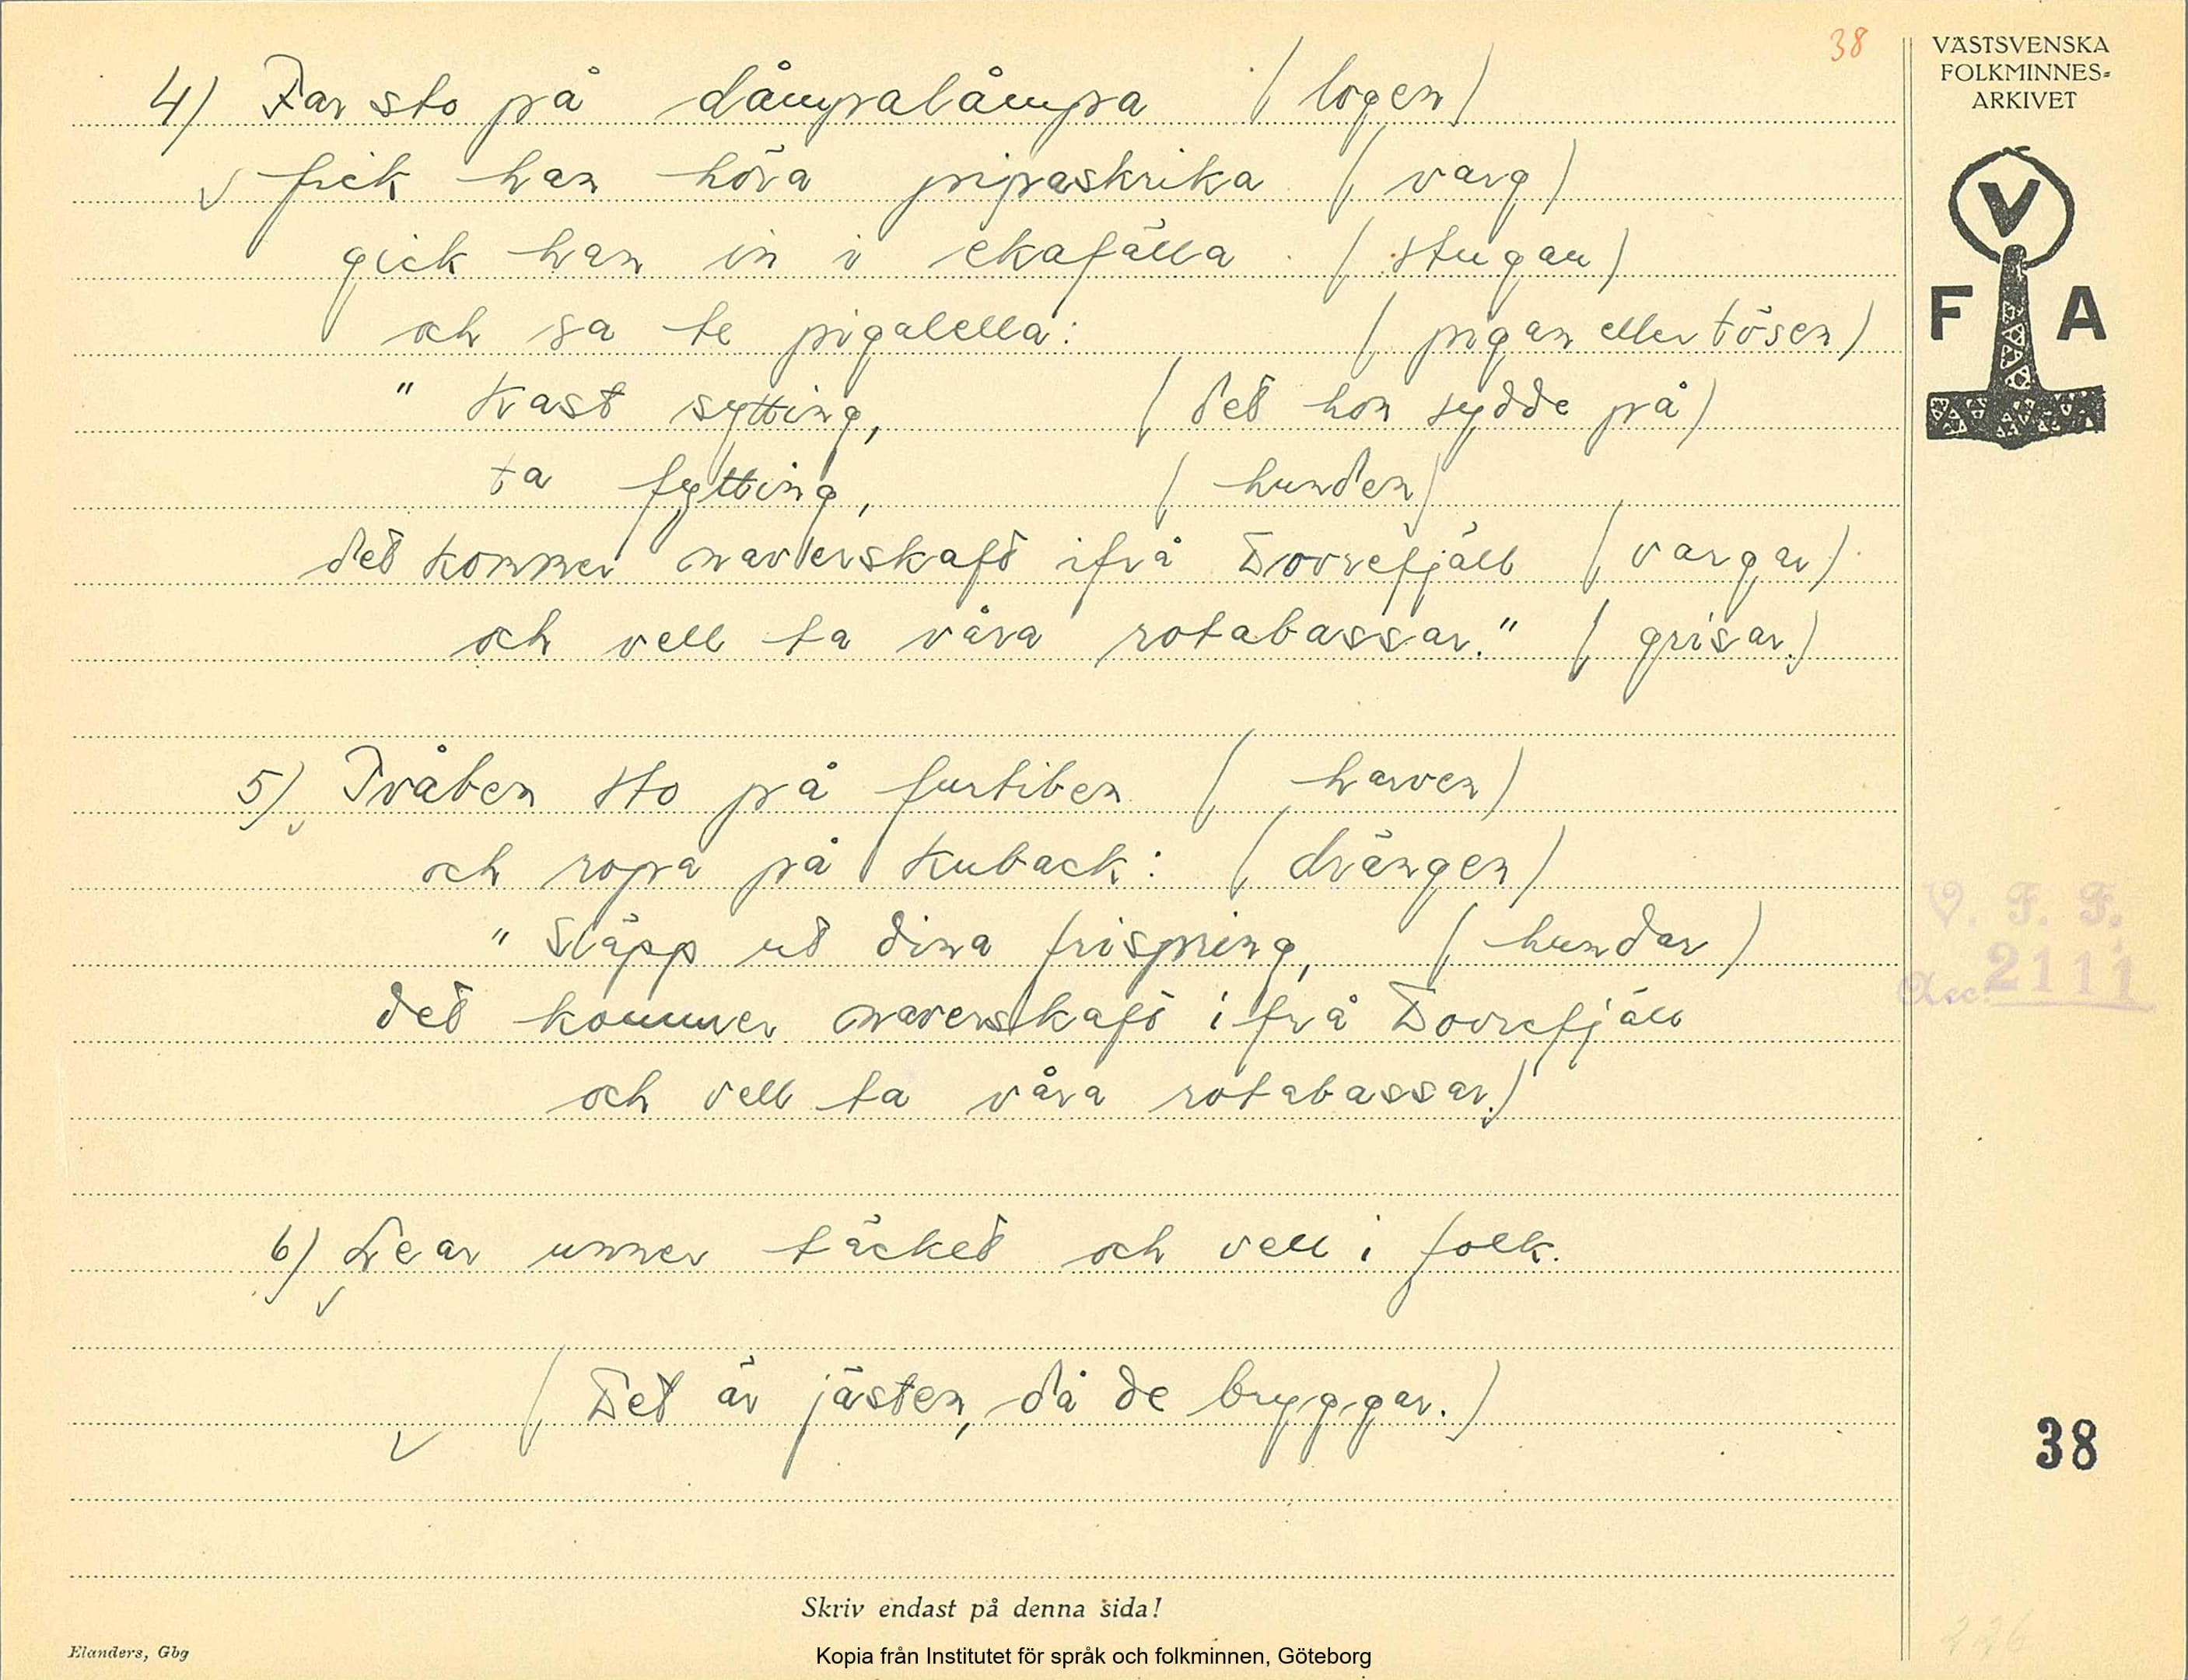 38
VÄSTSVENSKA
FOLKMINNES=
ARKIVET
V
F A
4) Far sto på dåmpalåmpa (logen)
fick han höra pipaskrika (varg)
gick han in i ekafälla (stugan)
och sa te pigalella: (pigan eller tösen)
" Kast sytting, (det hon sydde på)
ta fytting, (hunden)
det kommer naverskaft ifrå Dovrefjäll (vargar)
och vell ta våra rotabassar." (grisar.)
5) Tvåben sto på furtiben (harven)
och ropa på Kuback: (drängen)
" Släpp ut dina frispring, (hundar)
det kommer naverskaft ifrå Dovrefjäll
och vell ta våra rotabassar.)
V. F. F.
Acc. 2111
6) Lear unner täcket och vell i folk.
(Det är jästen, då de bryggar.)
38
Skriv endast på denna sida!
Elanders, Gbg
Kopia från Institutet för språk och folkminnen, Göteborg